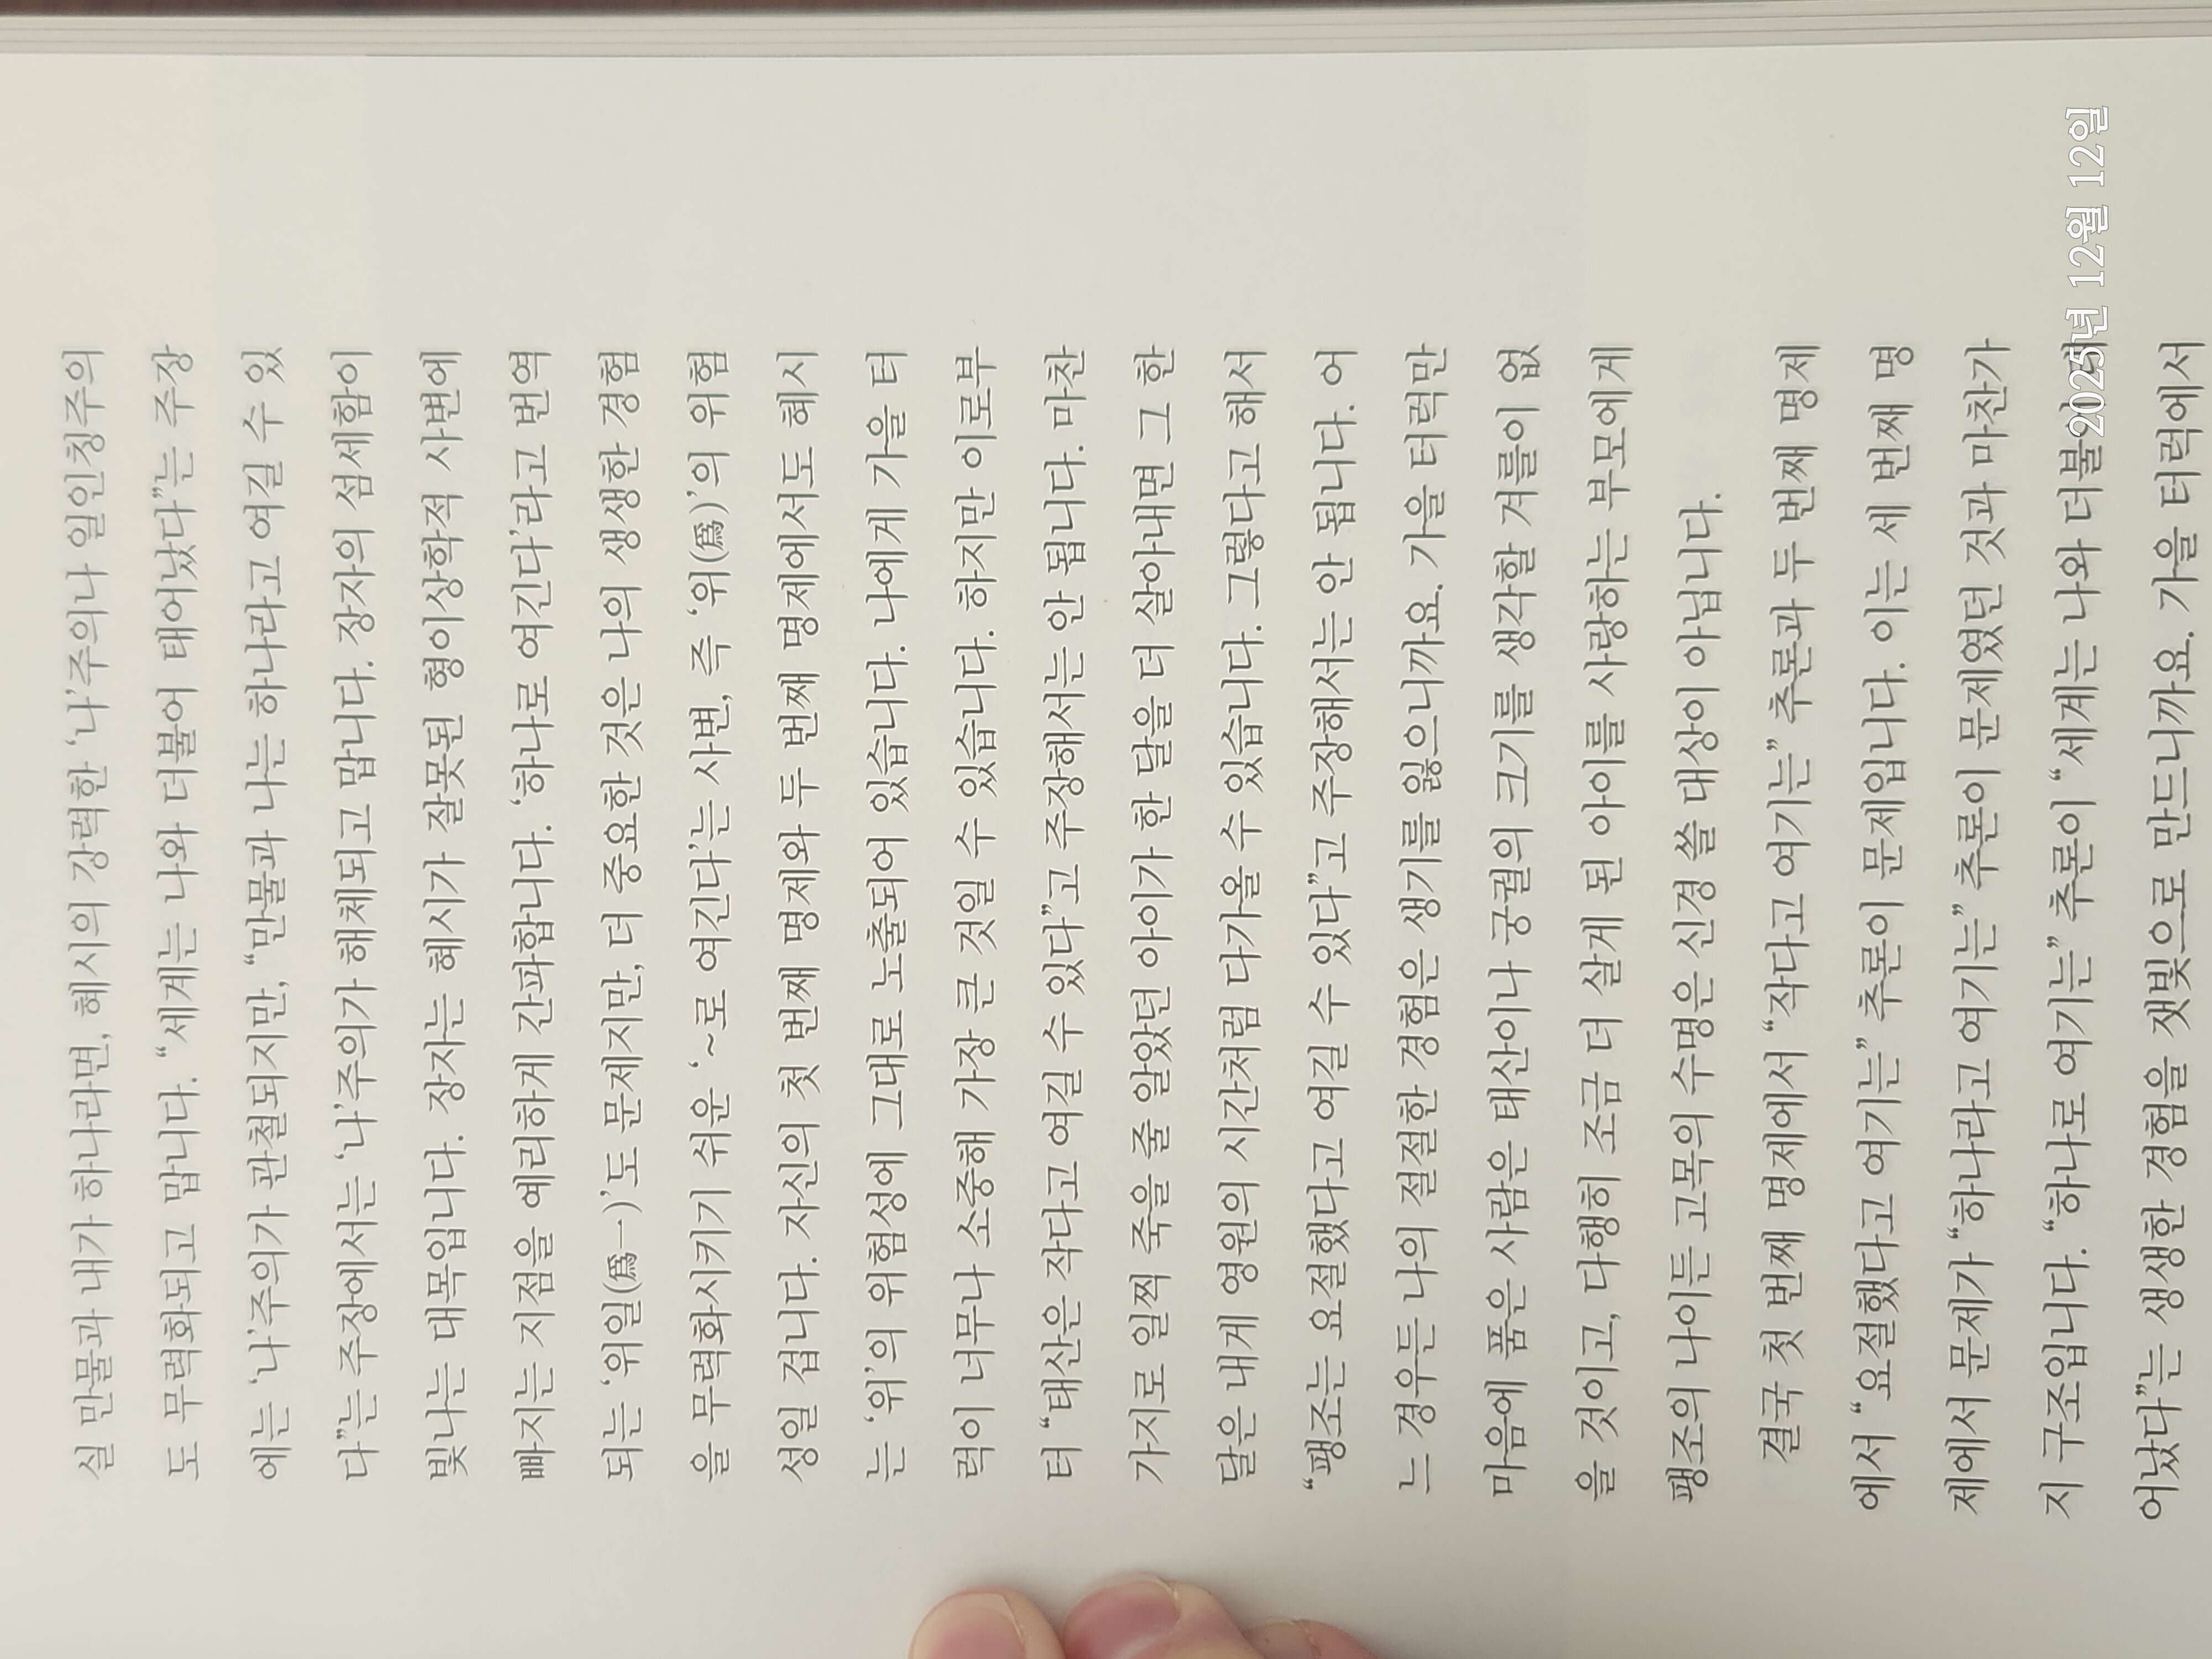 실 만물과 내가 하나라면, 혜시의 강력한 ‘나’주의나 일인칭주의
도 무력화되고 맙니다. “세계는 나와 더불어 태어났다”는 주장
에는 ‘나’주의가 관철되지만, “만물과 나는 하나라고 여길 수 있
다”는 주장에서는 ‘나’주의가 해체되고 맙니다. 장자의 섬세함이
빛나는 대목입니다. 장자는 혜시가 잘못된 형이상학적 사변에
빠지는 지점을 예리하게 간파합니다. ‘하나로 여긴다’라고 번역
되는 ‘위일(爲一)’도 문제지만, 더 중요한 것은 나의 생생한 경험
을 무력화시키기 쉬운 ‘~로 여긴다’는 사변, 즉 ‘위(爲)’의 위험
성일 겁니다. 자신의 첫 번째 명제와 두 번째 명제에서도 혜시
는 ‘위’의 위험성에 그대로 노출되어 있습니다. 나에게 가을 터
럭이 너무나 소중해 가장 큰 것일 수 있습니다. 하지만 이로부
터 “태산은 작다고 여길 수 있다”고 주장해서는 안 됩니다. 마찬
가지로 일찍 죽을 줄 알았던 아이가 한 달을 더 살아내면 그 한
달은 내게 영원의 시간처럼 다가올 수 있습니다. 그렇다고 해서
“팽조는 요절했다고 여길 수 있다”고 주장해서는 안 됩니다. 어
느 경우든 나의 절절한 경험은 생기를 잃으니까요. 가을 터럭만
마음에 품은 사람은 태산이나 궁궐의 크기를 생각할 겨를이 없
을 것이고, 다행히 조금 더 살게 된 아이를 사랑하는 부모에게
팽조의 나이든 고목의 수명은 신경 쓸 대상이 아닙니다.
결국 첫 번째 명제에서 “작다고 여기는” 추론과 두 번째 명제
에서 “요절했다고 여기는” 추론이 문제입니다. 이는 세 번째 명
제에서 문제가 “하나라고 여기는” 추론이 문제였던 것과 마찬가
지 구조입니다. “하나로 여기는” 추론이 “세계는 나와 더불
어났다”는 생생한 경험을 잿빛으로 만드니까요. 가을 터럭에서
2025년 12월 12일